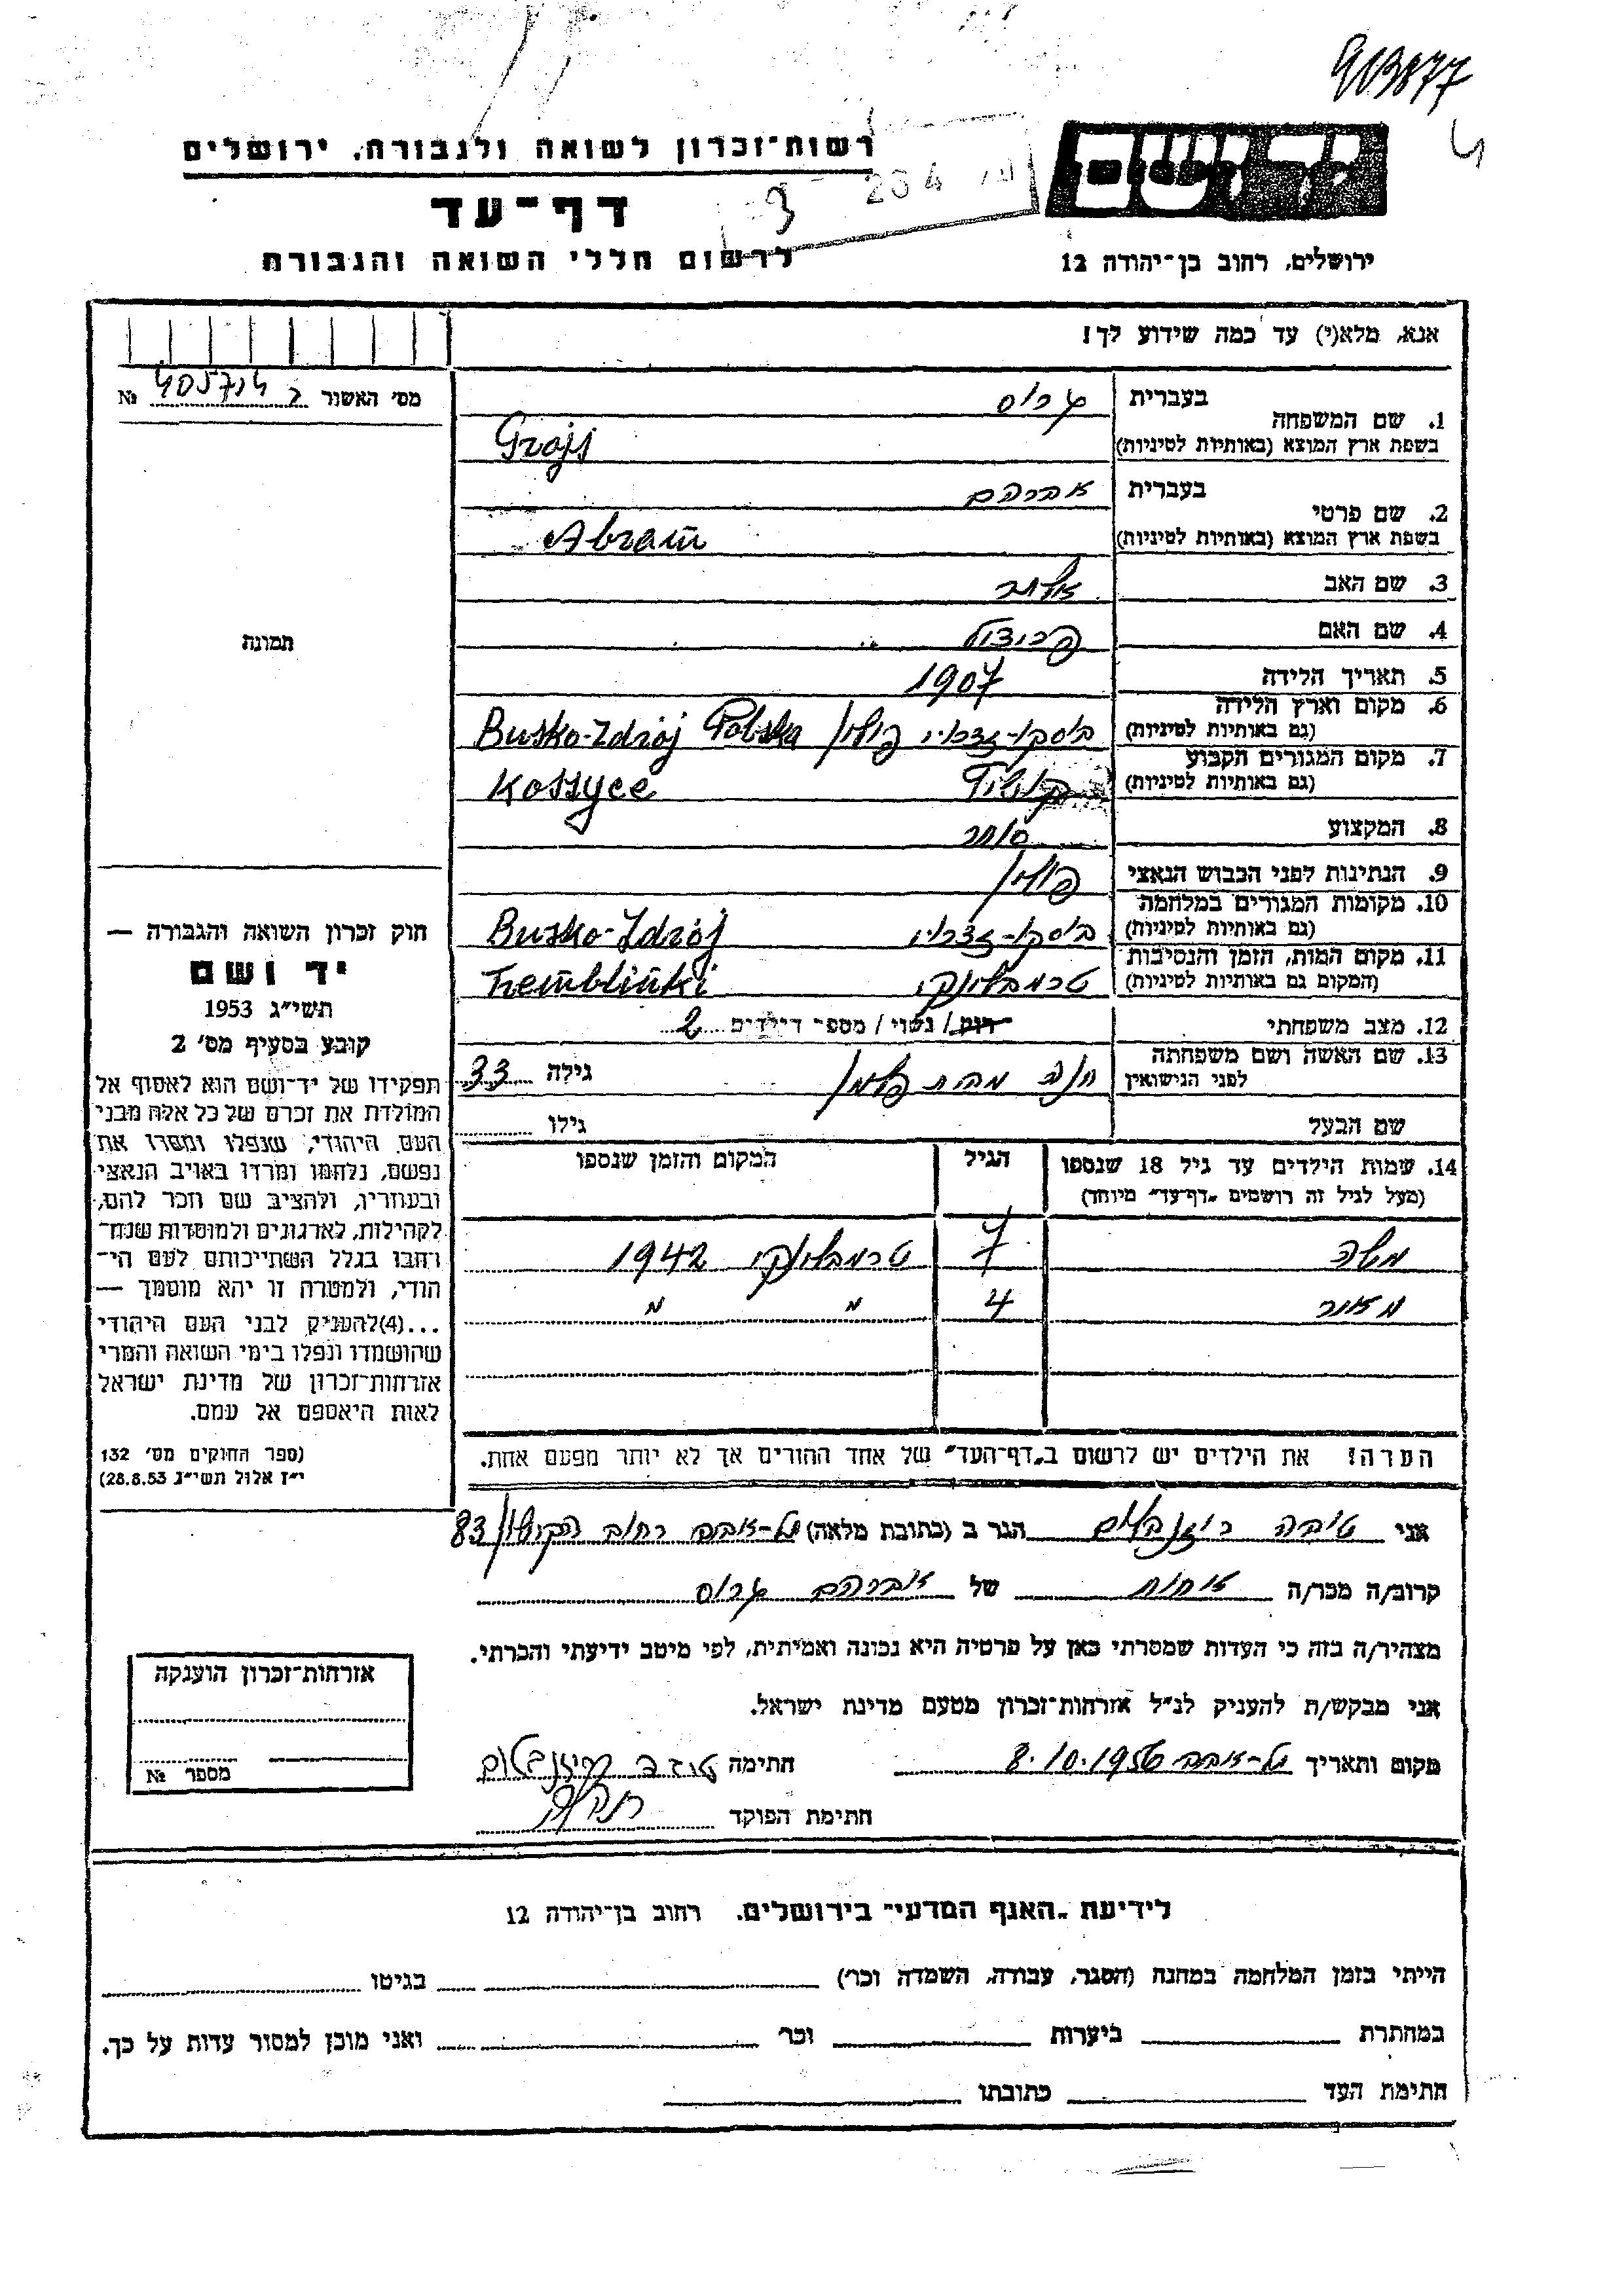 903877
4
יד ושם
רשות־זכרון לשואה ולגבורה, ירושלים
234
דף־עד
לרשום חללי השואה והגבורה
ירושלים, רחוב בן־יהודה 12
אנא, מלא(י) עד כמה שידוע לך!
מס' האשור 405714 № 
1. שם המשפחה
בעברית גרוס
בשפת ארץ המוצא (באותיות לטיניות) Grojs
2. שם פרטי
בעברית אברהם
בשפת ארץ המוצא (באותיות לטיניות) Abram
3. שם האב
4. שם האם
תמונה
5. תאריך הלידה 1907
6. מקום וארץ הלידה
(גם באותיות לטיניות) בוסקו-זדרוי פולין Busko-Zdrój Polska
7. מקום המגורים הקבוע
(גם באותיות לטיניות) Koszyce
8. המקצוע סוחר
9. הנתינות לפני הכבוש הנאצי פולין
10. מקומות המגורים במלחמה
(גם באותיות לטיניות) בוסקו-זדרוי Busko-Zdrój
11. מקום המות, הזמן והנסיבות
(המקום גם באותיות לטיניות) טרמבלינקי Tremblinki
12. מצב משפחתי רווק / נשוי / מספר הילדים 2
13. שם האשה ושם משפחתה
לפני הנישואין חנה מבית פלמן גילה 33
שם הבעל גילו
14. שמות הילדים עד גיל 18 שנספו
(מעל לגיל זה רושמים „דף־עד" מיוחד)
הגיל
המקום והזמן שנספו
משה 7 טרמבלינקי 1942
מאיר 4 " "
הערה! את הילדים יש לרשום ב„דף־העד" של אחד ההורים אך לא יותר מפעם אחת.
חוק זכרון השואה והגבורה —
יד ושם
תשי"ג 1953
קובע בסעיף מס' 2
תפקידו של יד־ושם הוא לאסוף אל
המולדת את זכרם של כל אלה מבני
העם היהודי, שנפלו ומסרו את
נפשם, נלחמו ומרדו באויב הנאצי
ובעוזריו, ולהציב שם וזכר להם,
לקהילות, לארגונים ולמוסדות שנח־
רחבו בגלל השתייכותם לעם הי־
הודי, ולמטרה זו יהא מוסמך —
...(4)להעניק לבני העם היהודי
שהושמדו ונפלו בימי השואה והמרי
אזרחות־זכרון של מדינת ישראל
לאות היאספם אל עמם.
(ספר החוקים מס' 132
י"ז אלול תשי"ג 28.8.53)
אני טובה רוזנבלום הגר ב (כתובת מלאה) תל-אביב רחוב 83
קרוב/ה מכר/ה אחות של אברהם גרוס
מצהיר/ה בזה כי העדות שמסרתי כאן על פרטיה היא נכונה ואמיתית, לפי מיטב ידיעתי והכרתי.
אני מבקש/ת להעניק לנ"ל אזרחות־זכרון מטעם מדינת ישראל.
מקום ותאריך תל-אביב 8.10.1956 חתימה
חתימת הפוקד
אזרחות־זכרון הוענקה
מספר №
לידיעת „האגף המדעי" בירושלים, רחוב בן־יהודה 12
הייתי בזמן המלחמה במחנה (הסגר, עבודה, השמדה וכו') בגיטו
במחתרת ביערות וכו' ואני מוכן למסור עדות על כך.
חתימת העד כתובתו